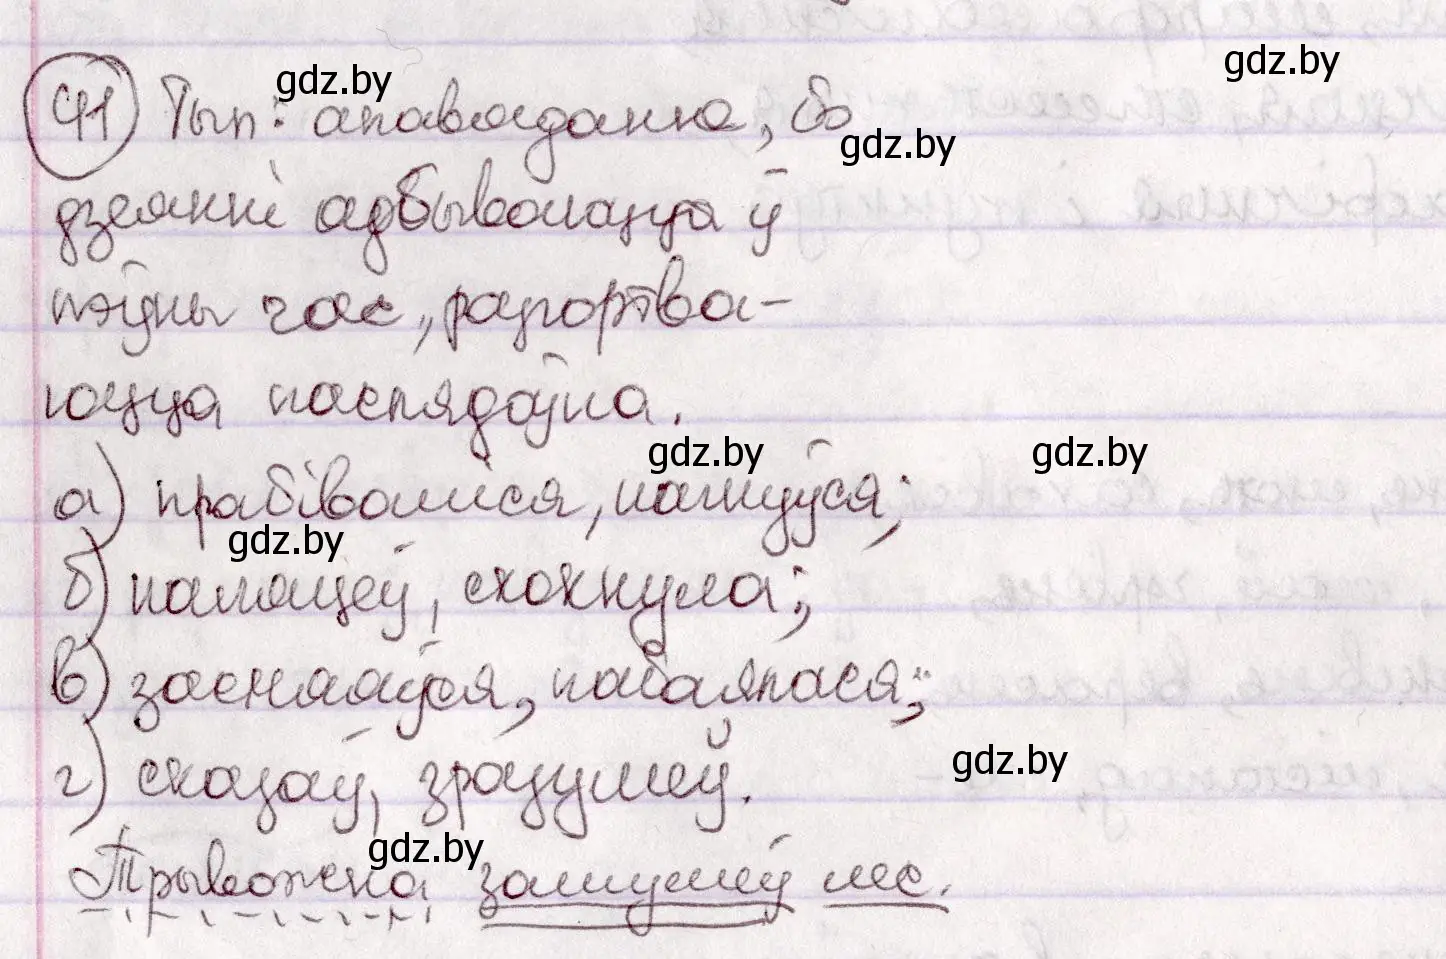 gdz.by
gdz.by
41 Тып: апавяданне, бо
gdz.by
дзеянні адбываюцца ў
пэўны час, разгортва-
юцца паслядоўна.
gdz.by
gdz.by
а) прабіваліся, нагнуўся;
gdz.by
б) паляцеў, схохнула;
в) засмяяўся, пабаялася;
г) сказаў, зразумеў.
gdz.by
gdz.by
Трывожна зашумеў лес.